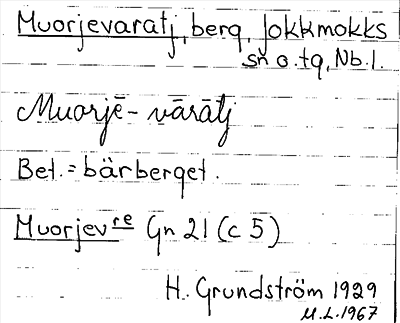 Muorjevaratj, berg, Jokkmokks
sn o. tg, Nb. l.
Muorjē-vārātj
Bet. = bärberget.
Muorjevre Gn 21 (c 5)
H. Grundström 1929
M.L. 1967